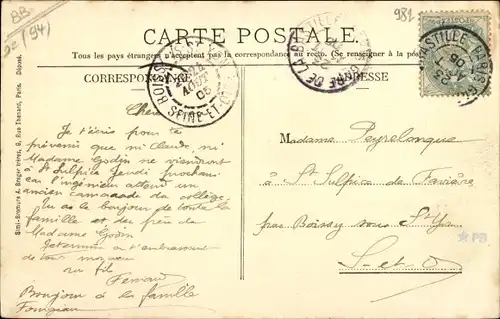 BB
(94)
981
CARTE POSTALE.
Tous les pays étrangers n'acceptent pas la correspondance au recto. (Se renseigner à la poste.)
CORRESPONDANCE
ADRESSE
BOISSY-S-ST-
AOUT
05
SEINE-ET-OISE
GARE DE LA BASTILLE
BASTILLE PARIS
Simi-Bromure A. Breger frères, 9, Rue Thénard, Paris. Déposé.
Cher
Je t'écris pour te
prévenir que ni Claude, ni
Madame Godin ne viendront
à St Sulpice Jeudi prochain
car l'ingénieur attend un
ancien camarade du collège
Tu as le bonjour de toute la
famille et du père de
Madame Godin
Je termine en t'embrassant
de tout mon cœur
ton fils
Fernand
Bonjour à la famille
Madame Peyrelongue
à St Sulpice de Favière
par Boissy sous St Yon
S-et-O
PB